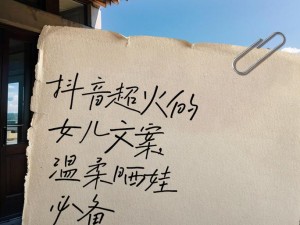 抖音超火的
女儿文案
温柔晒娃
必备